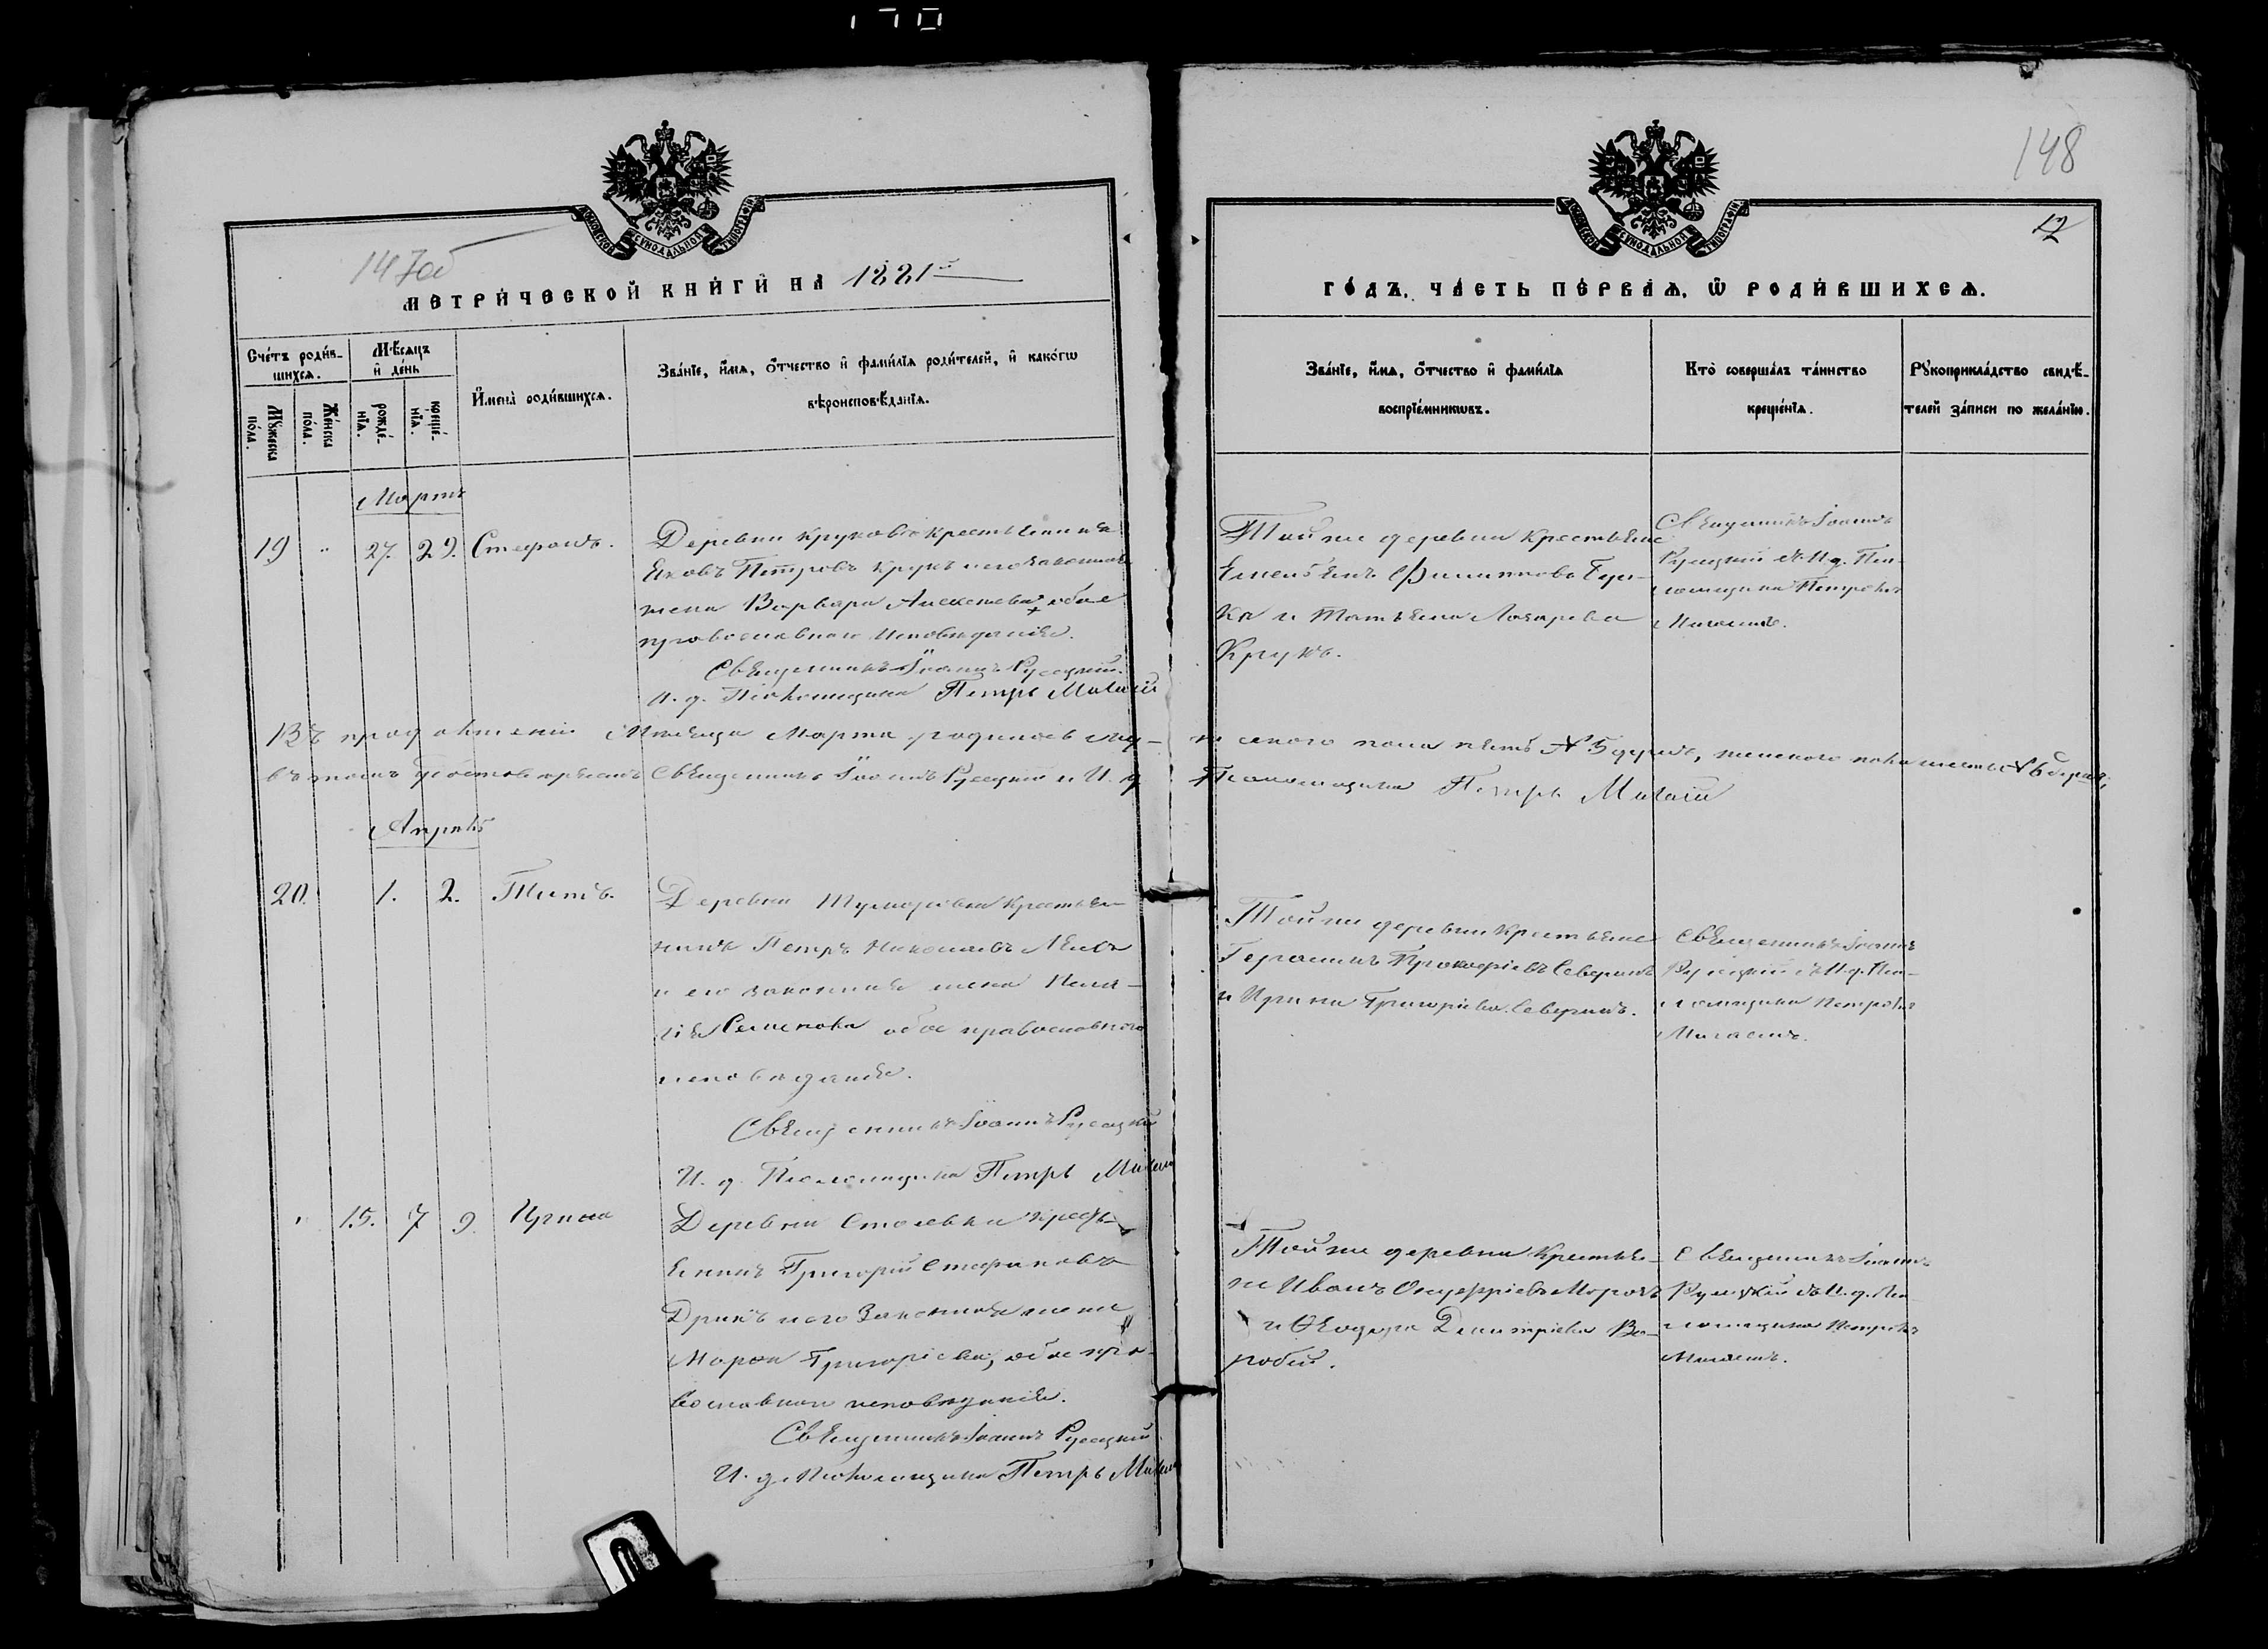 147об
148
12
МОСКОВСКОЙ СУНОДАЛЬНОЙ ТИПОГРАФІИ
МОСКОВСКОЙ СУНОДАЛЬНОЙ ТИПОГРАФІИ
МЕТРИЧЕСКОЙ КНИГИ НА 1881й
ГОДЪ, ЧАСТЬ ПЕРВАЯ, Ѡ РОДИВШИХСЯ.
Счетъ родив-
шихся.
Мужеска пола.
Женска пола.
Мѣсяцъ
и день
рожде-
нія.
креще-
нія.
Имена родившихся.
Званіе, имя, отчество и фамилія родителей, и какогѡ
вѣроисповѣданія.
Званіе, имя, отчество и фамилія
воспріемникѡвъ.
Кто совершалъ таинство
крещенія.
Рукоприкладство свидѣ-
телей записи по желанію.
Мартъ
19 " 27. 29. Стефанъ.
Деревни Круковки крестьянинъ
Яковъ Петровъ Крукъ и его законная
жена Варвара Алексѣева обое
православнаго исповѣданія.
Священникъ Іоаннъ Русецкій.
И. д. Псаломщика Петръ Мигай
Той же деревни крестьяне
Емельянъ Филипповъ
ка и Татьяна Лазарева
Крукъ.
Священникъ Іоаннъ
Русецкій съ И. д. Пса-
ломщика Петромъ
Мигаемъ.
Въ продолженіи Мѣсяца Марта родилось му-
жескаго пола пять № 5 душъ, женскаго пола шесть № 6 душъ,
въ томъ удостовѣряемъ Священникъ Іоаннъ Русецкій и И. д.
Псаломщика Петръ Мигай
Апрѣль
20. 1. 2. Титъ.
Деревни крестья-
нинъ Петръ Николаевъ
и его законная жена Пела-
гія Семенова обое православнаго
исповѣданія.
Священникъ Іоаннъ Русецкій
И. д. Псаломщика Петръ Мигай
Той же деревни крестьяне
Герасимъ Прокофіевъ Северинъ
и Ирина Григорьева Северинъ.
Священникъ Іоаннъ
Русецкій съ И. д. Пса-
ломщика Петромъ
Мигаемъ.
" 15. 7 9. Ирина
Деревни кресть-
янинъ Григорій Стефановъ
и его Законная жена
Марѳа Григоріева, обое пра-
вославнаго исповѣданія.
Священникъ Іоаннъ Русецкій
И. д. Псаломщика Петръ Мигай
Той же деревни крестья-
не Иванъ Онуфріевъ Морозъ
и Ѳеодора Димитріева Во-
робей.
Священникъ Іоаннъ
Русецкій съ И. д. Пса
ломщика Петромъ
Мигаемъ.